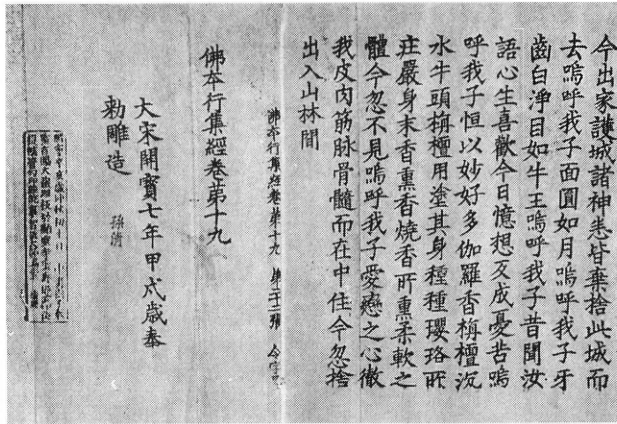 今出家護城諸神悉皆棄捨此城而
去嗚呼我子面圓如月嗚呼我子牙
齒白淨目如牛王嗚呼我子昔聞汝
語心生喜歡今日憶想反成憂苦嗚
呼我子恒以妙好多伽羅香栴檀沉
水牛頭栴檀用塗其身種種瓔珞𠩄
莊嚴身末香熏香燒香𠩄熏柔軟之
體今忽不見嗚呼我子愛戀之心徹
我皮肉筋脉骨髓而在中住今忽捨
出入山林間
佛本行集經卷第十九 第二十二張 令字号
佛本行集經卷苐十九
大宋開寶七年甲戌歲奉
勑雕造
孫清